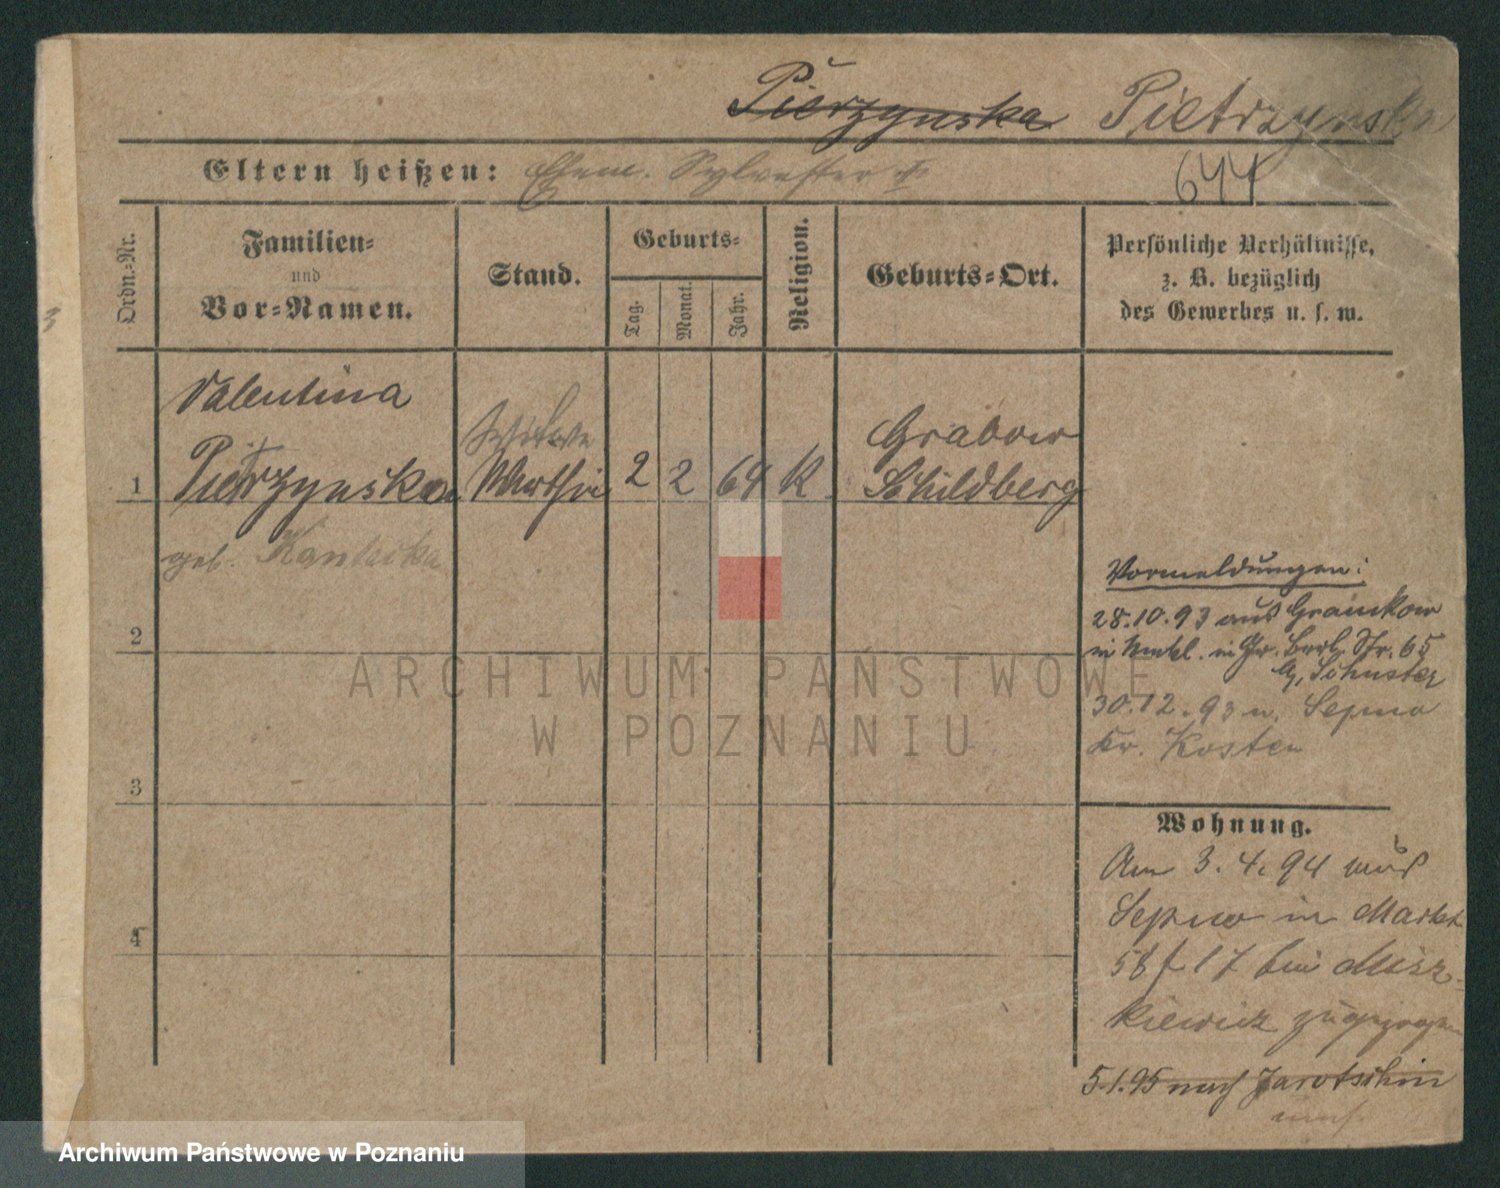 Pierzynska Pietrzynska
Eltern heißen: Ehem. Sylvester †
644
Ordn.-Nr.
Familien-
und
Vor-Namen.
Stand.
Geburts-
Tag.
Monat.
Jahr.
Religion.
Geburts-Ort.
Persönliche Verhältnisse,
z. B. bezüglich
des Gewerbes u. s. w.
Valentina
Wittwe
Grabow
1 Pietrzynska Wirthin 2 2 64 K Schildberg
geb.
Vormeldungen:
28.10.93 aus
in Gr. Berl. Str. 65
b, Schuster
30.12.93 n. Sepno
Kr. Kosten
2
3
4
Wohnung.
Am 3.4.94 aus
Sepno in Markt
17 bei Misz-
kiewicz zugezogen
5.1.95 nach Jarotschin
ARCHIWUM PAŃSTWOWE
W POZNANIU
Archiwum Państwowe w Poznaniu